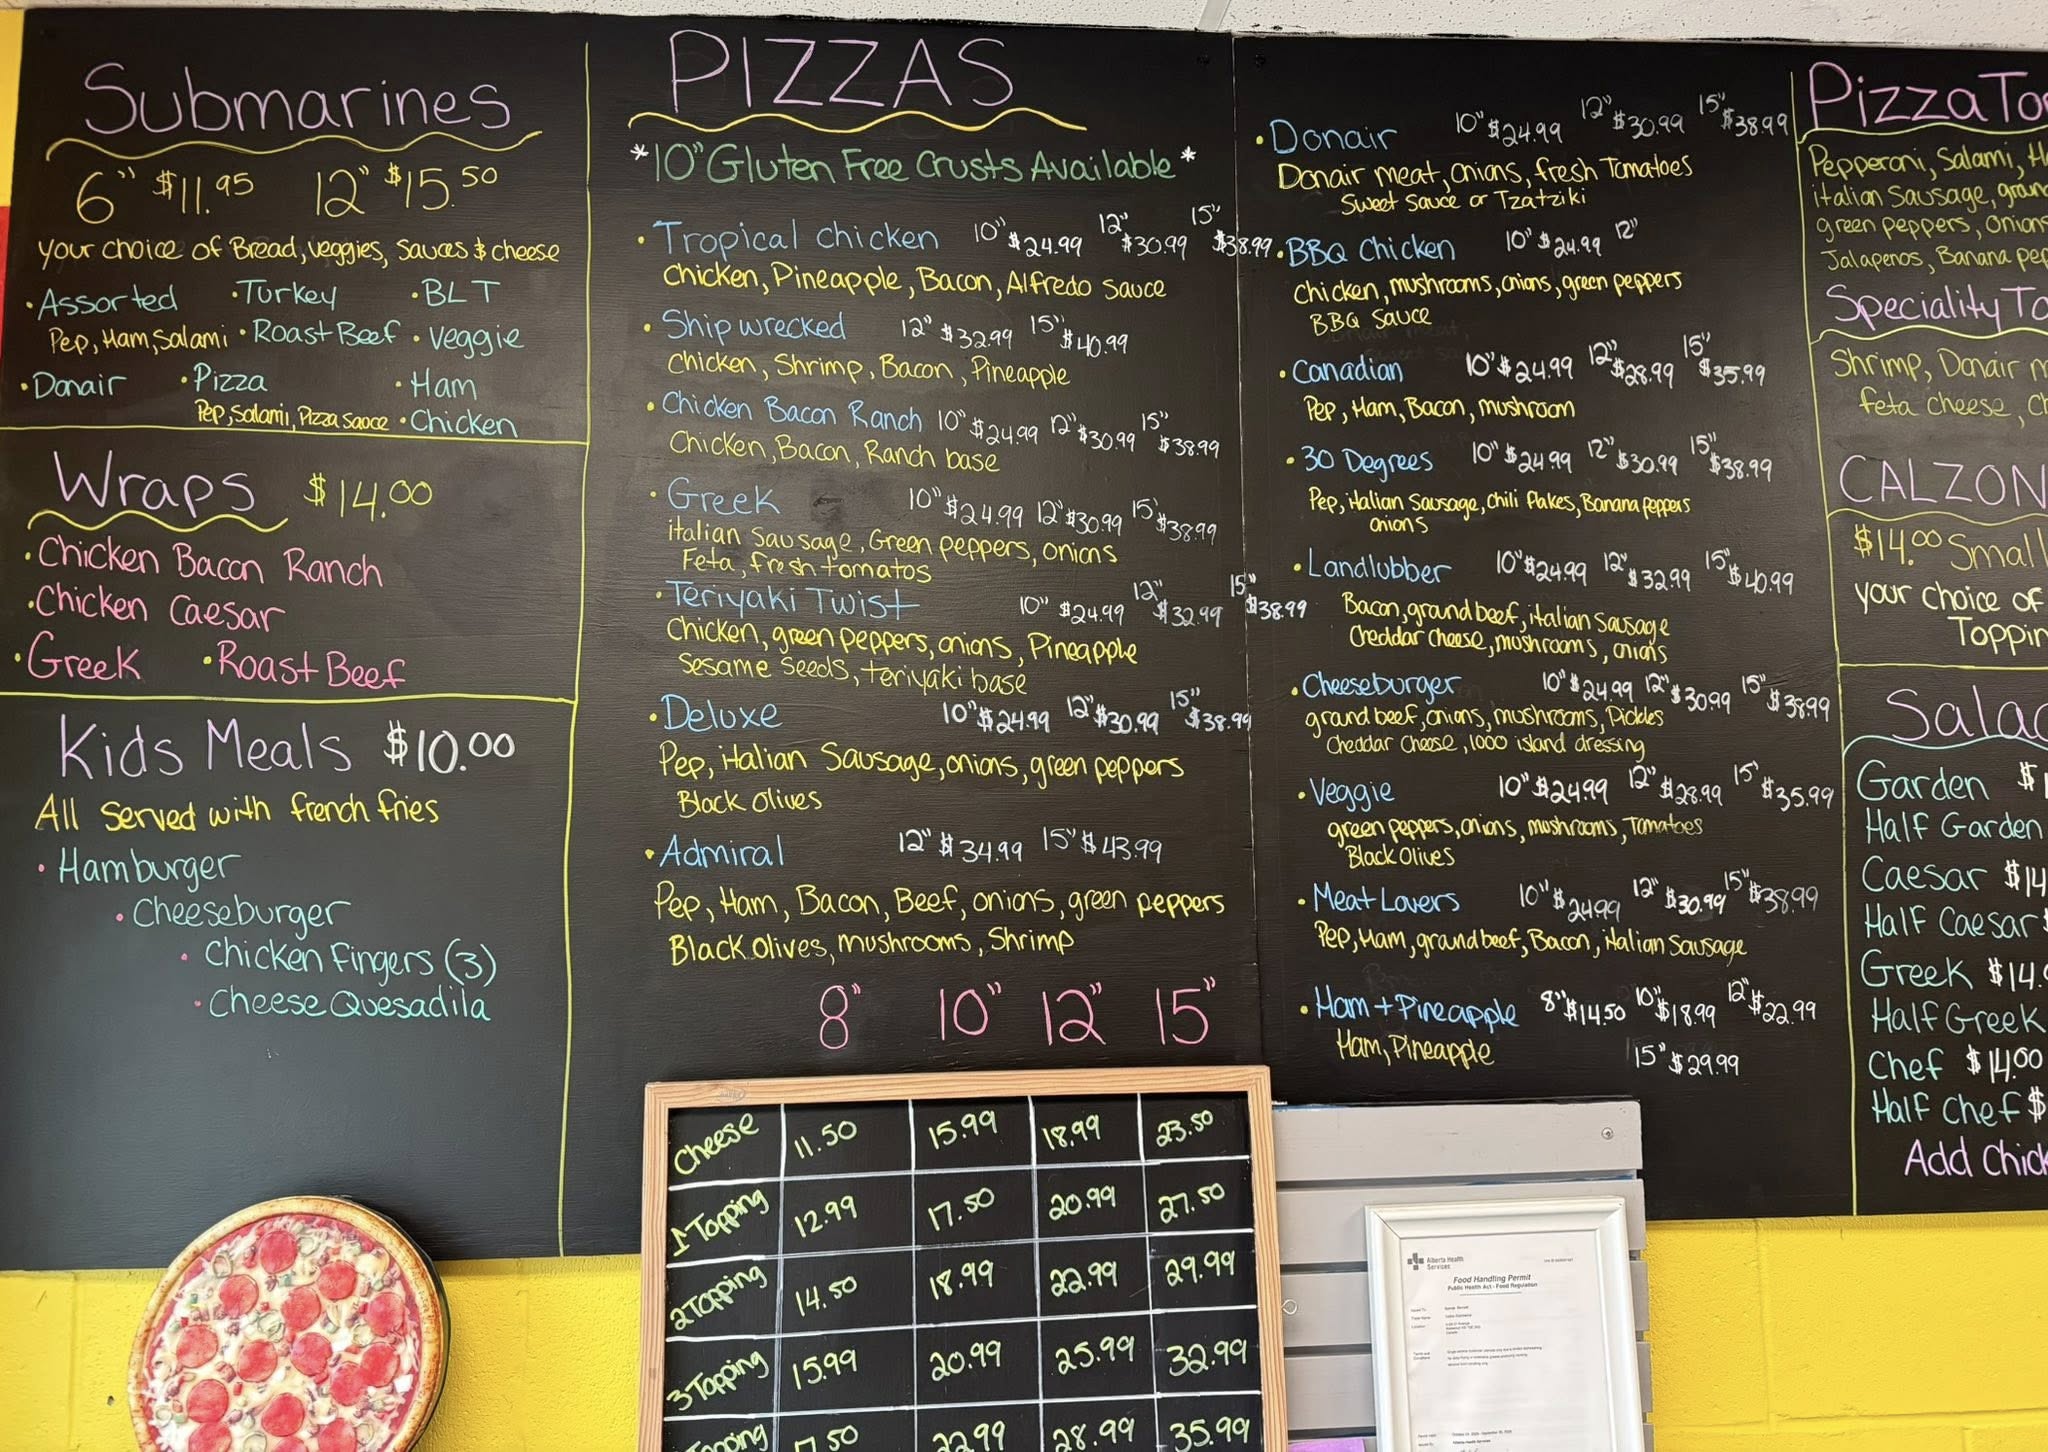 Submarines
6" $11.95 12" $15.50
your choice of Bread, veggies, sauces & cheese
• Assorted • Turkey • BLT
Pep, Ham, Salami • Roast Beef • Veggie
• Donair • Pizza • Ham
Pep, Salami, Pizza sauce • Chicken
Wraps $14.00
• Chicken Bacon Ranch
• Chicken Caesar
• Greek • Roast Beef
Kids Meals $10.00
All served with french fries
• Hamburger
• Cheeseburger
• Chicken Fingers (3)
• Cheese Quesadila
PIZZAS
*10" Gluten Free Crusts Available*
• Tropical chicken 10" $24.99 12" $30.99 15" $38.99
Chicken, Pineapple, Bacon, Alfredo sauce
• Ship wrecked 12" $32.99 15" $40.99
Chicken, Shrimp, Bacon, Pineapple
• Chicken Bacon Ranch 10" $24.99 12" $30.99 15" $38.99
Chicken, Bacon, Ranch base
• Greek 10" $24.99 12" $30.99 15" $38.99
italian Sausage, Green peppers, onions
Feta, fresh tomatos
• Teriyaki Twist 10" $24.99 12" $32.99 15" $38.99
Chicken, green peppers, onions, Pineapple
Sesame seeds, teriyaki base
• Deluxe 10" $24.99 12" $30.99 15" $38.99
Pep, italian Sausage, onions, green peppers
Black olives
• Admiral 12" $34.99 15" $43.99
Pep, Ham, Bacon, Beef, onions, green peppers
Black olives, mushrooms, Shrimp
8" 10" 12" 15"
Cheese 11.50 15.99 18.99 23.50
1 Topping 12.99 17.50 20.99 27.50
2 Topping 14.50 18.99 22.99 29.99
3 Topping 15.99 20.99 25.99 32.99
22.99 28.99 35.99
• Donair 10" $24.99 12" $30.99 15" $38.99
Donair meat, onions, fresh Tomatoes
Sweet sauce or Tzatziki
• BBQ Chicken 10" $24.99 12"
Chicken, mushrooms, onions, green peppers
BBQ Sauce
• Canadian 10" $24.99 12" $28.99 15" $35.99
Pep, Ham, Bacon, mushroom
• 30 Degrees 10" $24.99 12" $30.99 15" $38.99
Pep, italian Sausage, Chili flakes, Banana peppers
onions
• Landlubber 10" $24.99 12" $32.99 15" $40.99
Bacon, grand beef, italian Sausage
Cheddar cheese, mushrooms, onions
• Cheeseburger 10" $24.99 12" $30.99 15" $38.99
grand beef, onions, mushrooms, Pickles
Cheddar Cheese, 1000 island dressing
• Veggie 10" $24.99 12" $28.99 15" $35.99
green peppers, onions, mushrooms, Tomatoes
Black Olives
• Meat Lovers 10" $24.99 12" $30.99 15" $38.99
Pep, Ham, grand beef, Bacon, italian Sausage
• Ham + Pineapple 8" $14.50 10" $18.99 12" $22.99
Ham, Pineapple 15" $29.99
Pizza
Pepperoni, Salami,
italian Sausage,
green peppers,
Jalapenos, Banana
Speciality
Shrimp, Donair
feta cheese,
CALZON
$14.00 Small
your choice of
Salad
Garden
Half Garden
Caesar $14
Half Caesar
Greek $14.
Half Greek
Chef $14.00
Half Chef $
Add
Alberta Health
Services
Food Handling Permit
Public Health Act - Food Regulation